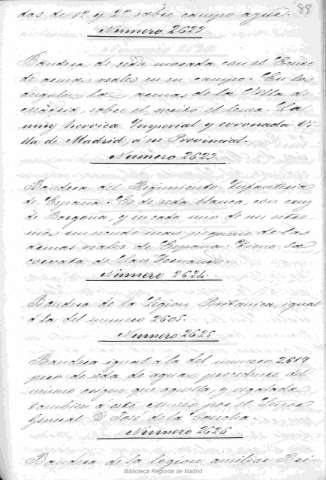 88
dos de 1º y 2º sobre campo
Número 2622
Bandera de seda morada con el Escudo
de armas reales en su campo. En los
ángulos las armas de la Villa de
sobre el lema. La
muy heroica Imperial y coronada Vi-
lla de Madrid, a su Provincial.
Número 2623.
Bandera del Regimiento Infantería
de España. Es de seda blanca, con cruz
de Borgoña, y en cada uno de sus extre-
mos un escudo mas pequeño de las
armas reales de España. Tiene la
corbata de San Fernando.
Número 2624.
Bandera de la Legion Britanica, igual
á la del número 2605.
Número 2625
Bandera igual á la del número 2619
pero de seda de aguas, procedente del
mismo origen que aquella, y regalada
tambien a este Museo por el Excmo
General D. José de la Concha.
Número 2626
Bandera de la legion auxiliar
Biblioteca Regional de Madrid